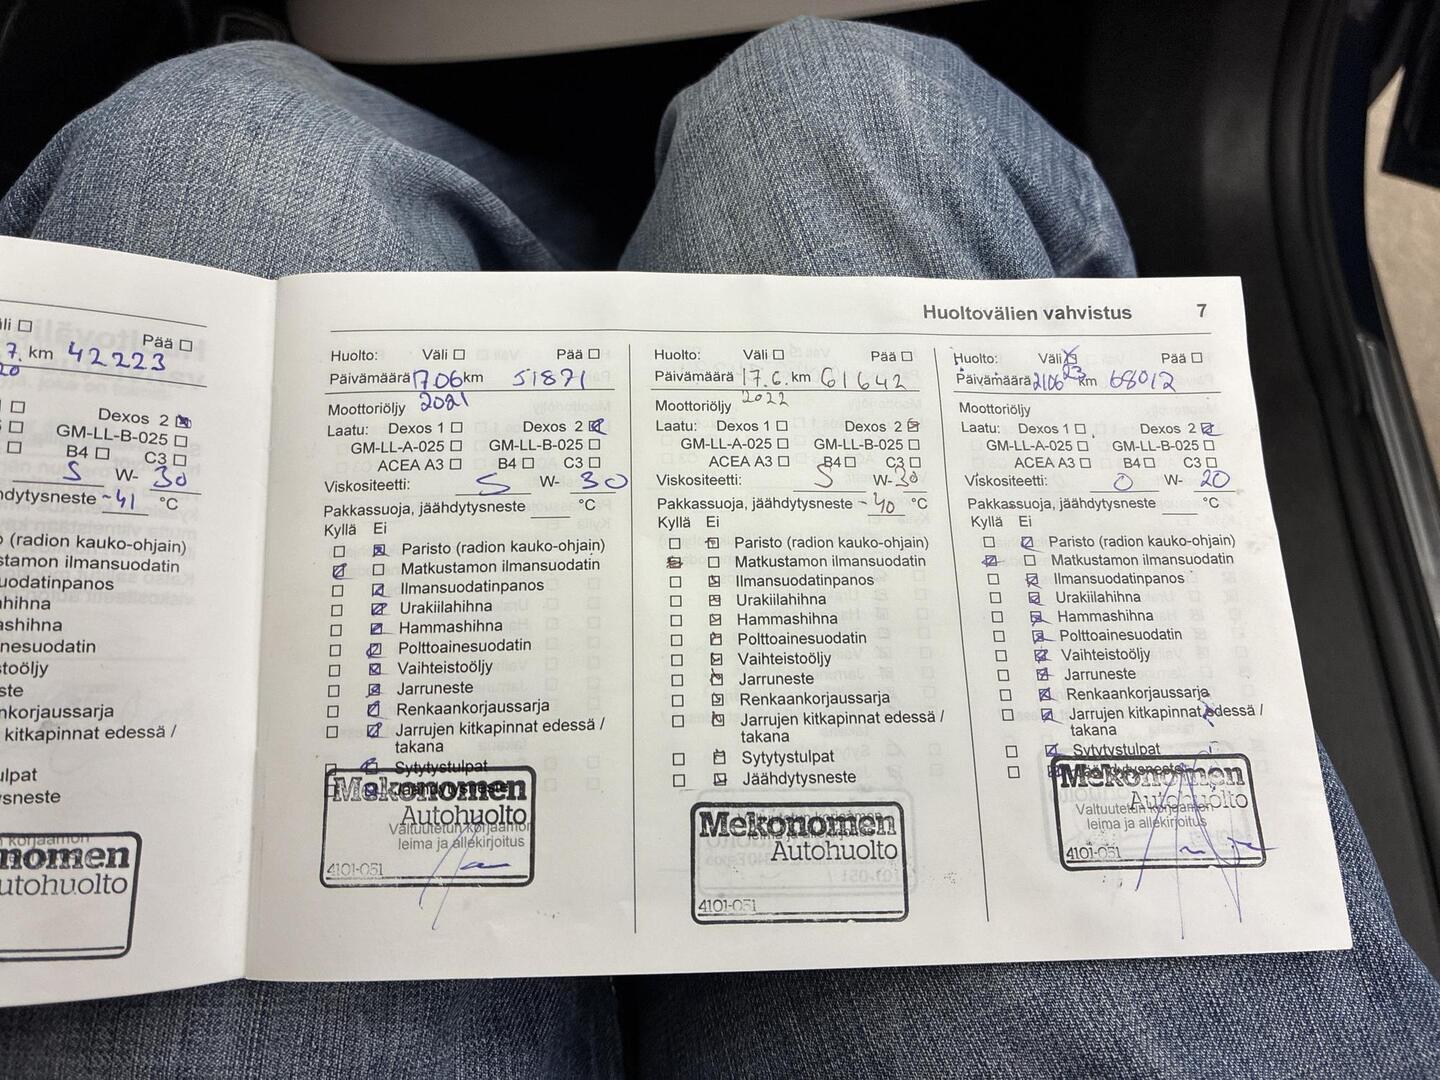 Pää
7. km 42223
20
Dexos 2
GM-LL-B-025
B4 C3
5 W- 30
-41 °C
(radion kauko-ohjain)
nomen
Huoltovälien vahvistus 7
Huolto: Väli Pää
Päivämäärä 1706 km 51871
2021
Moottoriöljy
Laatu: Dexos 1 Dexos 2
GM-LL-A-025 GM-LL-B-025
ACEA A3 B4 C3
Viskositeetti: 5 W- 30
Pakkassuoja, jäähdytysneste °C
Kyllä Ei
Paristo (radion kauko-ohjain)
Matkustamon ilmansuodatin
Ilmansuodatinpanos
Urakiilahihna
Hammashihna
Polttoainesuodatin
Vaihteistoöljy
Jarruneste
Renkaankorjaussarja
Jarrujen kitkapinnat edessä /
takana
Sytytystulpat
Jäähdytysneste
Mekonomen
Autohuolto
Valtuutetun korjaamon
leima ja allekirjoitus
4101-051
Huolto: Väli Pää
Päivämäärä 17.6. km 61642
2022
Moottoriöljy
Laatu: Dexos 1 Dexos 2
GM-LL-A-025 GM-LL-B-025
ACEA A3 B4 C3
Viskositeetti: 5 W- 30
Pakkassuoja, jäähdytysneste -40 °C
Kyllä Ei
Paristo (radion kauko-ohjain)
Matkustamon ilmansuodatin
Ilmansuodatinpanos
Urakiilahihna
Hammashihna
Polttoainesuodatin
Vaihteistoöljy
Jarruneste
Renkaankorjaussarja
Jarrujen kitkapinnat edessä /
takana
Sytytystulpat
Jäähdytysneste
Mekonomen
Autohuolto
4101-051
Huolto: Väli Pää
Päivämäärä 2106 23 km 68012
Moottoriöljy
Laatu: Dexos 1 Dexos 2
GM-LL-A-025 GM-LL-B-025
ACEA A3 B4 C3
Viskositeetti: 0 W- 20
Pakkassuoja, jäähdytysneste °C
Kyllä Ei
Paristo (radion kauko-ohjain)
Matkustamon ilmansuodatin
Ilmansuodatinpanos
Urakiilahihna
Hammashihna
Polttoainesuodatin
Vaihteistoöljy
Jarruneste
Renkaankorjaussarja
Jarrujen kitkapinnat edessä /
takana
Sytytystulpat
Jäähdytysneste
Mekonomen
Autohuolto
Valtuutetun korjaamon
leima ja allekirjoitus
4101-051